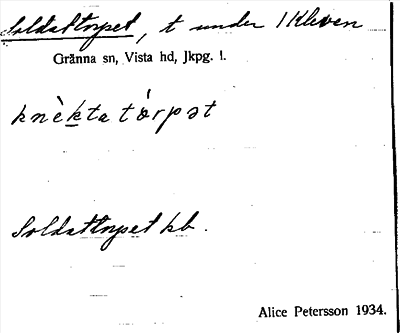 Soldattorpet, t under 1 Kleven
Gränna sn, Vista hd, Jkpg. l.
knèkta tórpət
Soldattorpet kb.
Alice Petersson 1934.